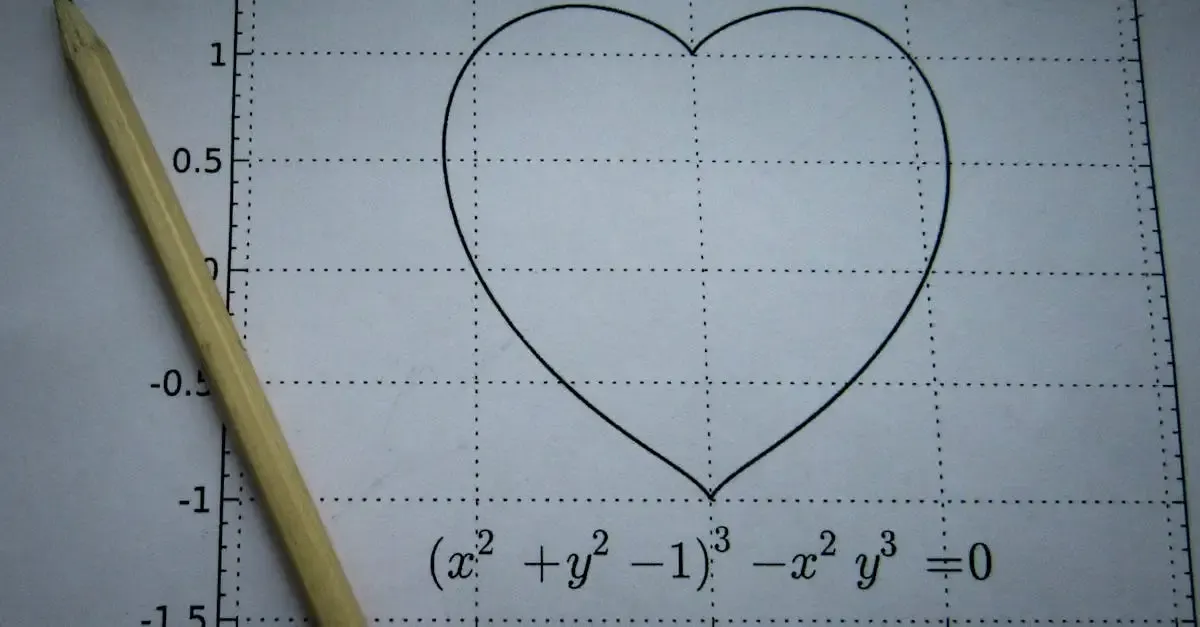 1
0.5
0
-0.5
-1
(x² +y² −1)³ −x² y³ =0
-1.5